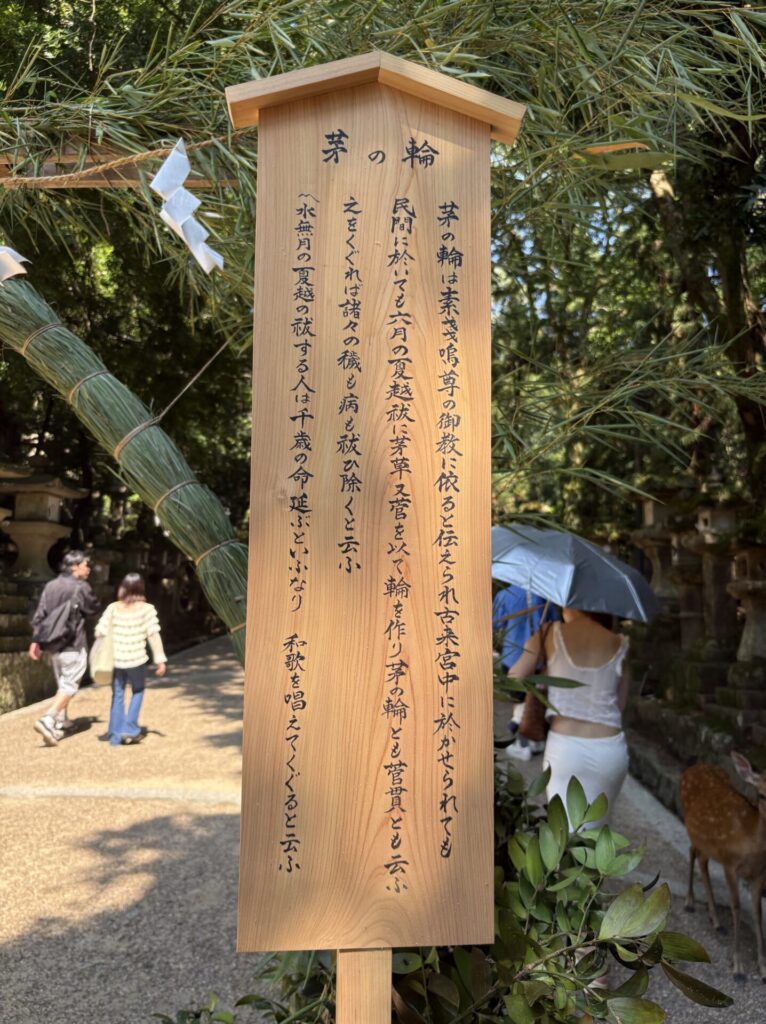 茅の輪
茅の輪は素戔嗚尊の御教に依ると伝えられ古来宮中に於かせられても
民間に於いても六月の夏越祓に茅草又菅を以て輪を作り茅の輪とも菅貫とも云ふ
之をくぐれば諸々の穢も病も祓ひ除くと云ふ
〽水無月の夏越の祓する人は千歳の命延ぶといふなり 和歌を唱えてくぐると云ふ